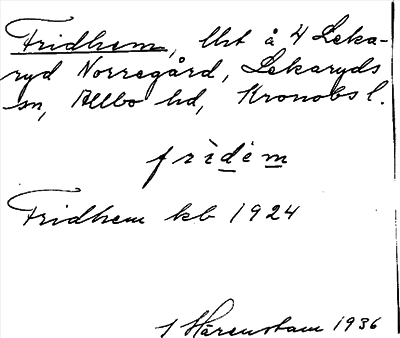 Fridhem, lht å 4 Leka-
ryd Norregård, Lekaryds
sn, Allbo hd, Kronobs l.
frìdém
Fridhem kb 1924
1 Härenstam 1936